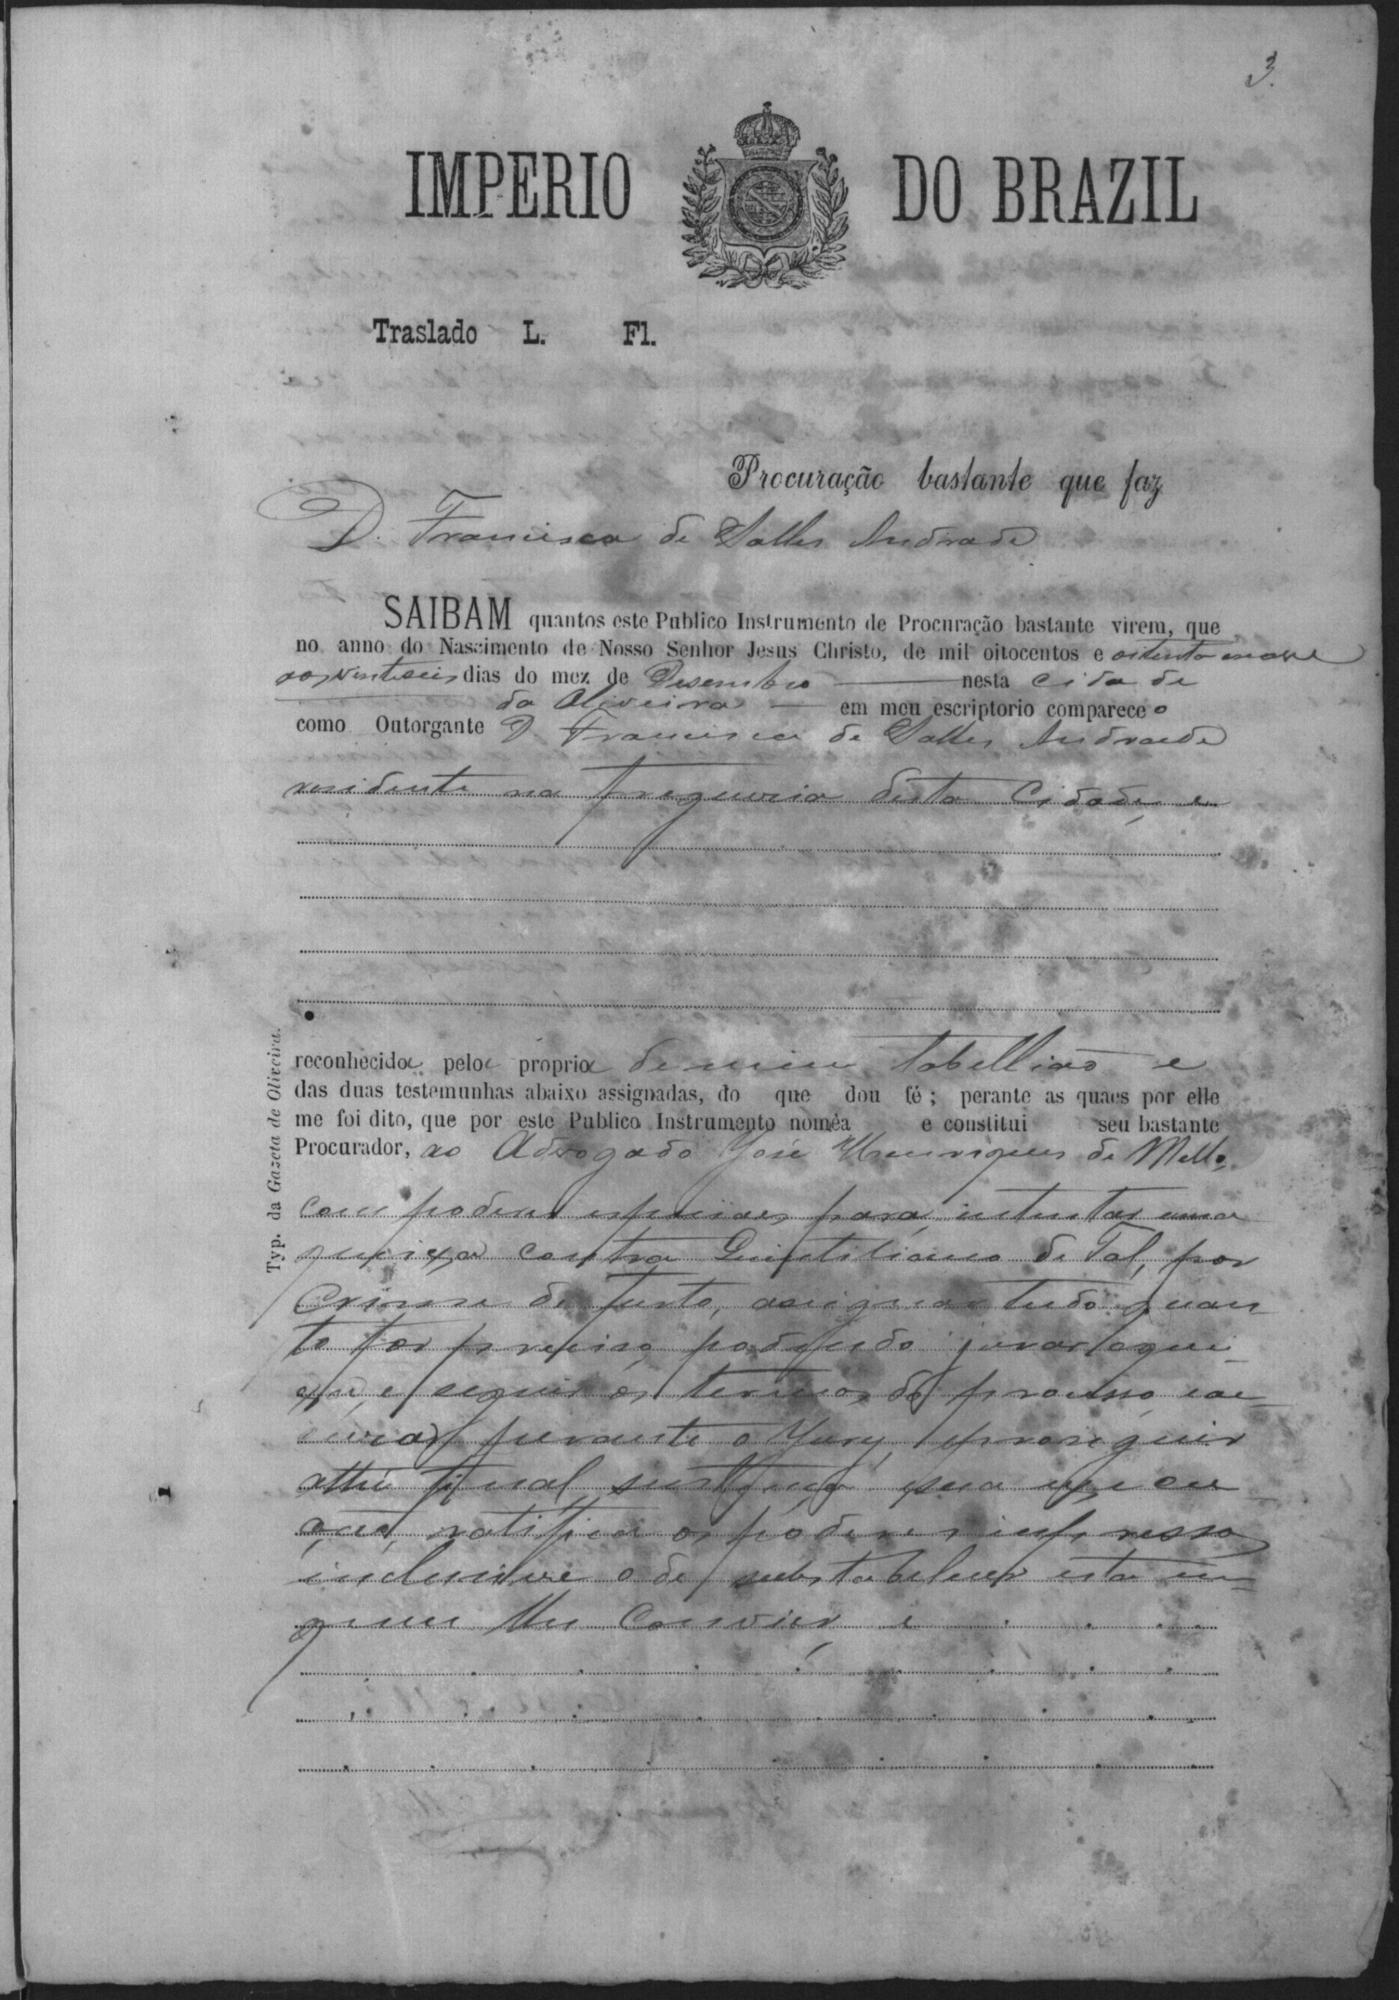 3.
IMPERIO DO BRAZIL
Traslado L. Fl.
Procuração bastante que faz
D. Francisca de Salles Andrade
SAIBAM quantos este Publico Instrumento de Procuração bastante virem, que
no anno do Nascimento de Nosso Senhor Jesus Christo, de mil oitocentos e oitenta nove
aos vinte seis dias do mez de Desembro nesta cidade
da Oliveira em meu escriptorio compareceo
como Outorgante D. Francisca de Salles Andrade
residente na freguesia desta Cidade, e
reconhecida pela propria de mim Tabellião e
das duas testemunhas abaixo assignadas, do que dou fé; perante as quaes por elle
me foi dito, que por este Publico Instrumento noméa e constitui seu bastante
Procurador, ao Advogado José Henriques de Mello,
com poderes especiaes para intentar uma
queixa contra Quintiliano de Tal, por
Crime de furto, assignar tudo quan
to for preciso, podendo jurar a quei
xa, e seguir os termos do processo,
perante o Jury, e proseguir
athé final sua execu
ção, ratifica os poderes impressos
inclusive o de substabelecer esta em
quem lhe convier, e
Typ. da Gazeta de Oliveira.